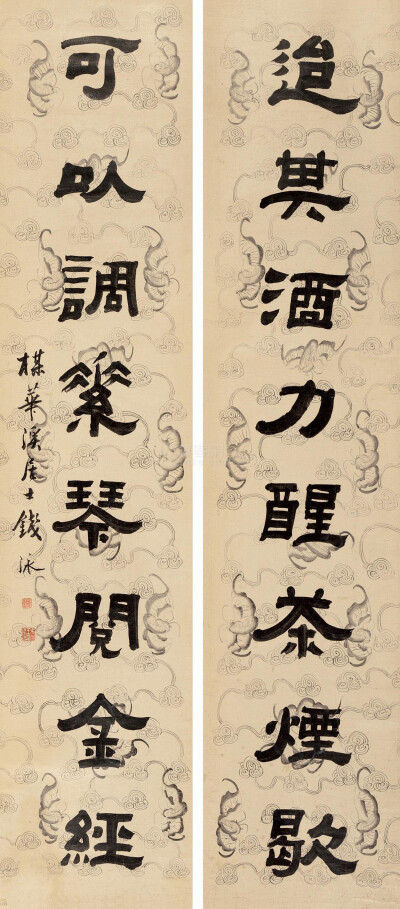 迨其酒力醒茶煙歇
可以調素琴閱金經
楳華溪居士錢泳